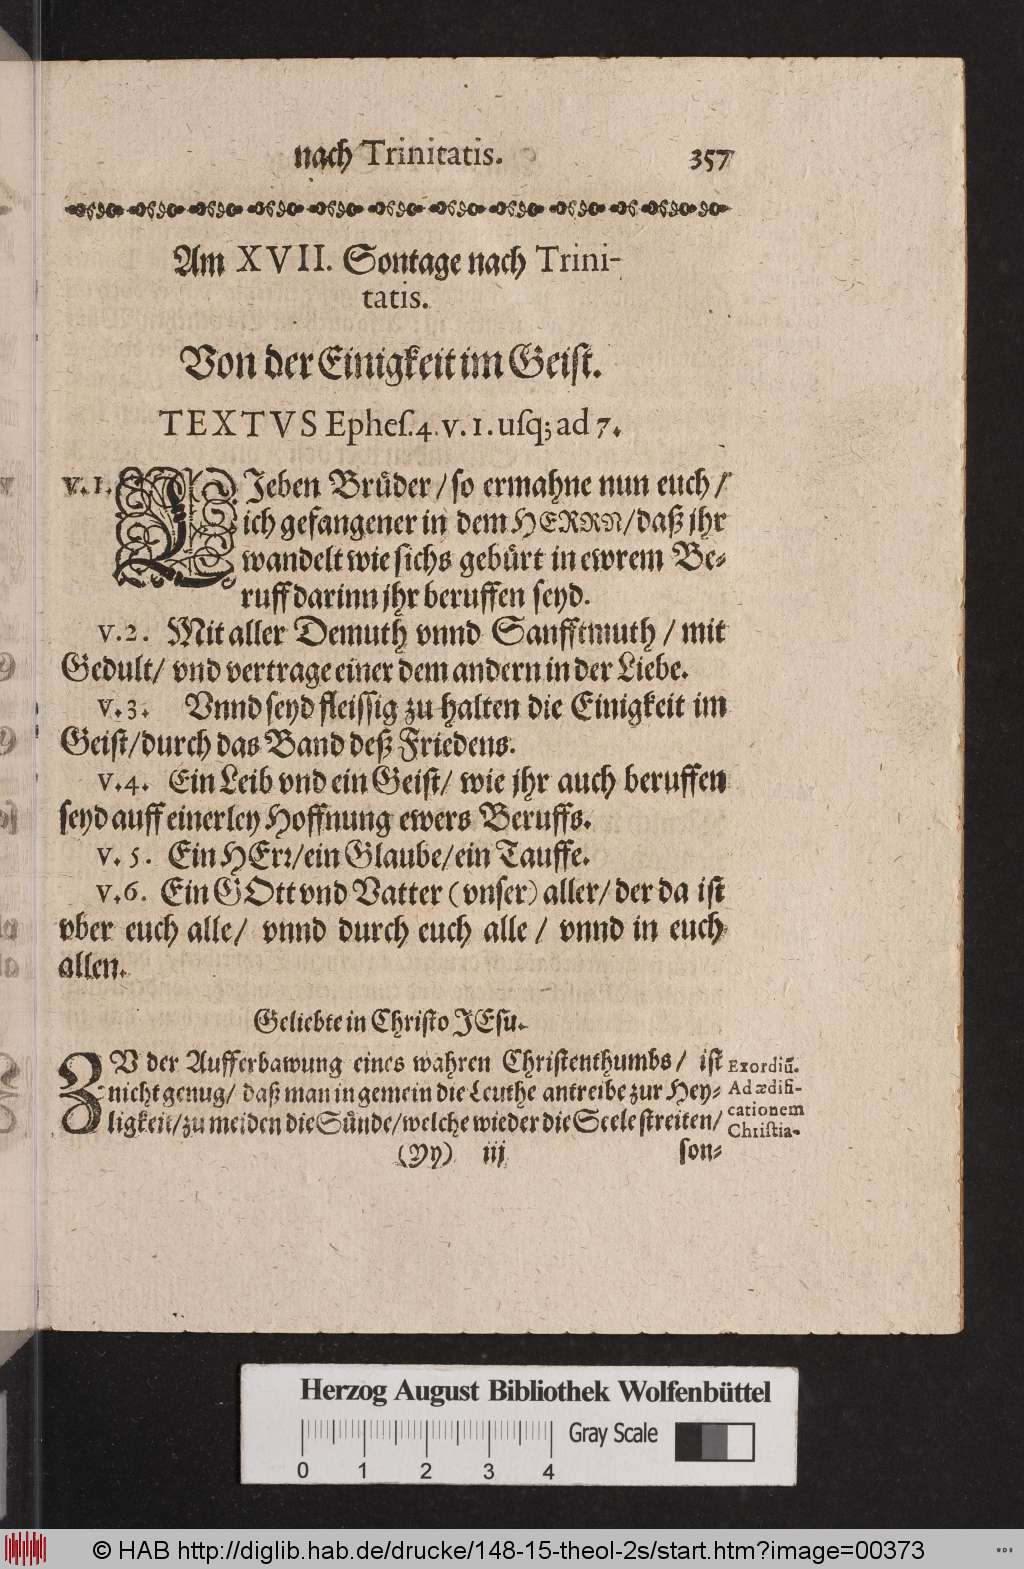 nach Trinitatis. 357
Am XVII. Sontage nach Trini-
tatis.
Von der Einigkeit im Geist.
TEXTVS Ephes. 4. v. 1. usq; ad 7.
v. 1. LIeben Brüder / so ermahne nun euch /
ich gefangener in dem HERRN / daß jhr
wandelt wie sichs gebürt in ewrem Be-
ruff darinn jhr beruffen seyd.
v. 2. Mit aller Demuth vnnd Sanfftmuth / mit
Gedult / vnd vertrage einer dem andern in der Liebe.
v. 3. Vnnd seyd fleissig zu halten die Einigkeit im
Geist / durch das Band deß Friedens.
v. 4. Ein Leib vnd ein Geist / wie jhr auch beruffen
seyd auff einerley Hoffnung ewers Beruffs.
v. 5. Ein HErr / ein Glaube / ein Tauffe.
v. 6. Ein GOtt vnd Vatter (vnser) aller / der da ist
vber euch alle / vnnd durch euch alle / vnnd in euch
allen.
Geliebte in Christo JEsu.
ZV der Aufferbawung eines wahren Christenthumbs / ist
nicht genug / daß man in gemein die Leuthe antreibe zur Hey-
ligkeit / zu meiden die Sünde / welche wieder die Seele streiten /
Exordiū.
Ad ædifi-
cationem
Christia-
(Yy) iij son-
Herzog August Bibliothek Wolfenbüttel
Gray Scale
0 1 2 3 4
© HAB http://diglib.hab.de/drucke/148-15-theol-2s/start.htm?image=00373